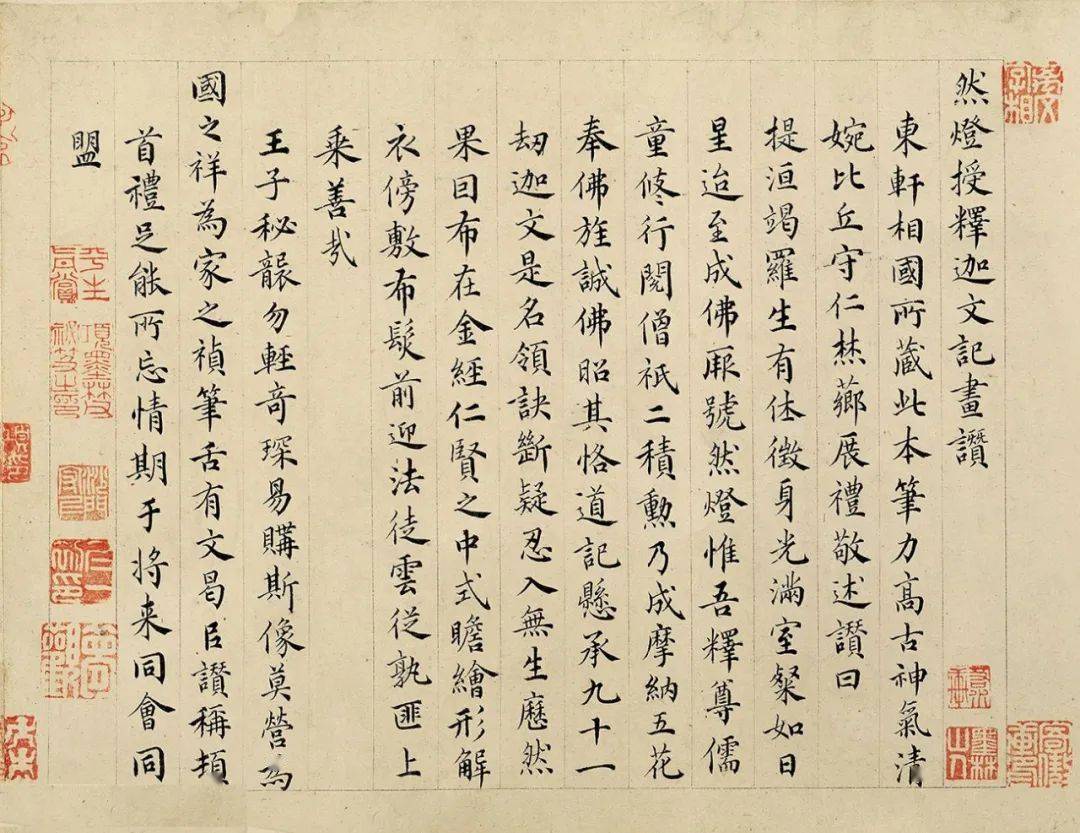 然燈授釋迦文記畫讚
東軒相國所藏此本筆力高古神氣清
婉比丘守仁焚薌展禮敬述讚曰
提洹竭羅生有休徵身光滿室粲如日
星迨至成佛厥號然燈惟吾釋尊儒
童修行閱僧祇二積勳乃成摩納五花
奉佛旌誠佛昭其恪道記懸承九十一
劫迦文是名領訣斷疑忍入無生歷然
果因布在金經仁賢之中式瞻繪形解
衣傍敷布髮前迎法徒雲從孰匪上
乘善哉
王子秘襲勿輕奇琛易購斯像莫營為
國之祥為家之禎筆舌有文曷臣讚稱頫
首禮足能所忘情期于將来同會同
盟